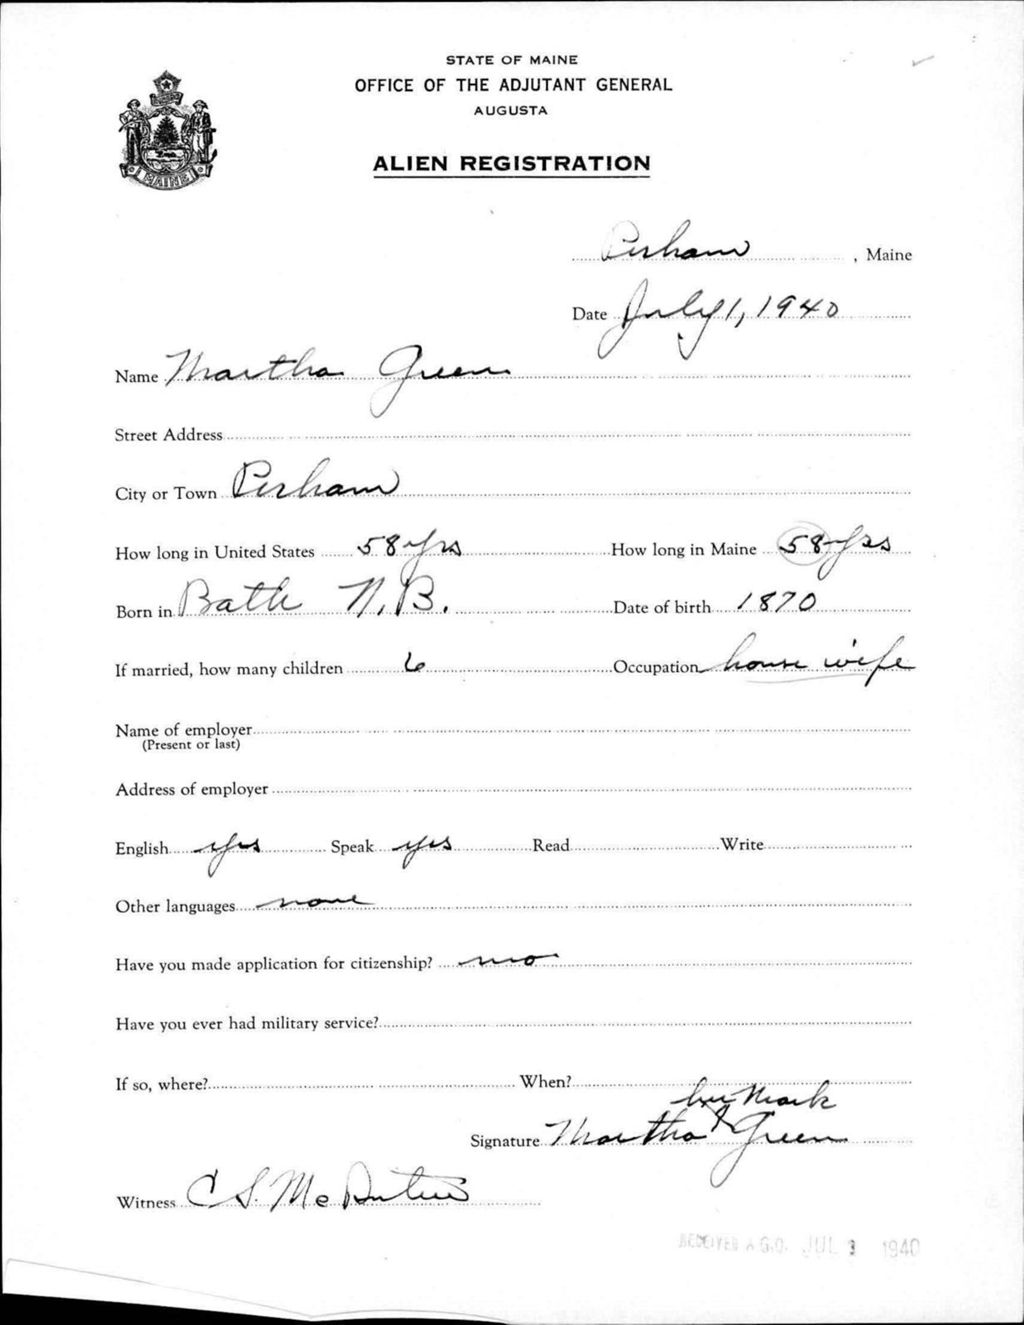 STATE OF MAINE
OFFICE OF THE ADJUTANT GENERAL
AUGUSTA
ALIEN REGISTRATION
MAINE
Perham, Maine
Date July 1, 1940
Name Martha Green
Street Address
City or Town Perham
How long in United States 58 yrs How long in Maine 58 yrs
Born in Bath N.B. Date of birth 1870
If married, how many children 6 Occupation house wife
Name of employer
(Present or last)
Address of employer
English yes Speak yes Read Write
Other languages none
Have you made application for citizenship? no
Have you ever had military service?
If so, where? When?
her Mark
Signature Martha X Green
Witness C S. Mc
RECEIVED A.G.O. JUL 1940